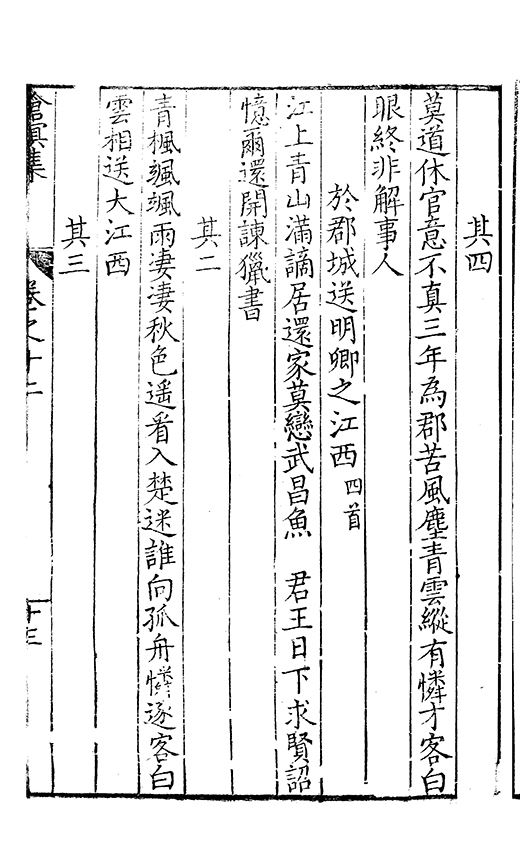 其四
莫道休官意不真三年為郡苦風塵青雲縱有憐才客白
眼終非解事人
於郡城送明卿之江西四首
江上青山滿謫居還家莫戀武昌魚　君王日下求賢詔
憶爾還開諫獵書
其二
青楓颯颯雨淒淒秋色遥看入楚迷誰向孤舟憐逐客白
雲相送大江西
其三
滄溟集
卷之十二
十三